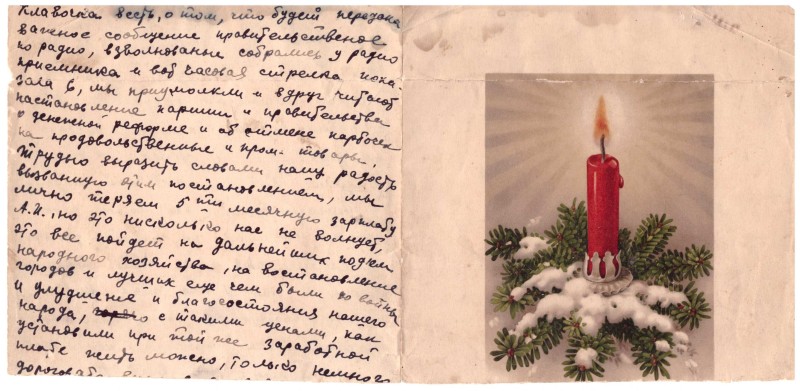 Клавочка весть, о том, что будет передана
важное сообщение правительственое
по радио, взволнованые собрались у радио
приемника и вот часовая стрелка пока-
зала 6, мы приумолкли и вдруг читают
постановление партии и правительства
о денежной реформе и об отмене карточек
на продовольственные и пром-товары,
трудно выразить словами нашу радость
вызванную этим постановлением, мы
лично теряем 5ти месячную зарплату
А.И., но это нисколько нас не волнует,
это все пойдет на дальнейших под'ем
народного хозяйства, на востановление
городов и лучших еще чем были до войны
и улудшение и благосостояния нашего
народа, с такими ценами, как
установили при той же заработной
плате жить можно, только немного